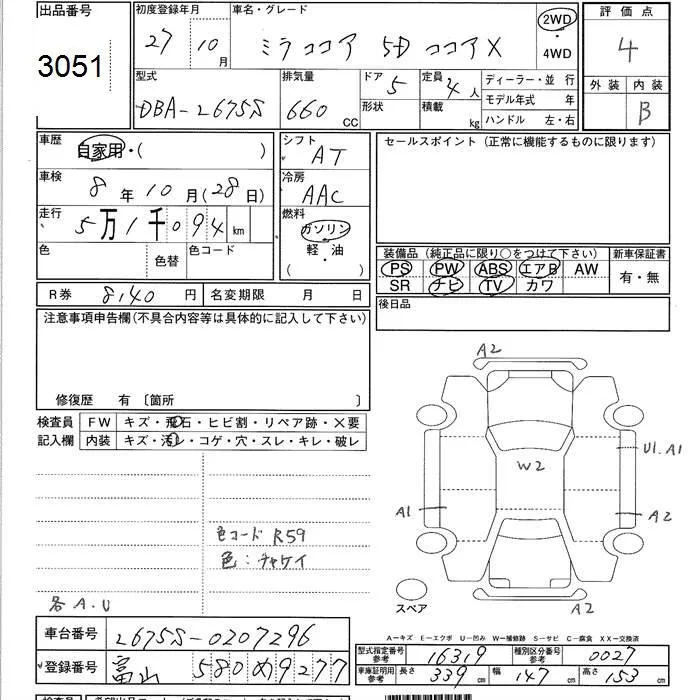 出品番号 3051
初度登録年月 27 10月
車名・グレード ミラココア 5D ココアX
2WD・4WD
評価点 4
外装 内装 B
型式 DBA-L675S
排気量 660 CC
ドア 5 形状
定員 4人 積載 kg
ディーラー・並 行
モデル年式 年
ハンドル 左・右
車歴 自家用・( )
車検 8年10月(28日)
走行 5万1千094km
色 色替 色コード
シフト AT
冷房 AAC
燃料 ガソリン 軽・油 ( )
セールスポイント (正常に機能するものに限ります)
装備品 (純正品に限り○をつけて下さい)
PS PW ABS エアB AW
SR ナビ TV カワ
新車保証書 有・無
R券 8,140円 名変期限 月 日
後日品
注意事項申告欄(不具合内容等は具体的に記入して下さい)
修復歴 有 〔箇所 〕
検査員記入欄
FW キズ・飛石・ヒビ割・リペア跡・×要
内装 キズ・汚レ・コゲ・穴・スレ・キレ・破レ
色コード R59
色:チャケイ
各A.U
A2
W2
U1.A1
A1
A2
A2
スペア
A−キズ E−エクボ U−凹み W−補修跡 S−サビ C−腐食 XX−交換済
車台番号 L675S-0207296
登録番号 富山 580 め 9277
型式指定番号参考 16319 種別区分番号参考 0027
車庫証明用参考 長さ 339cm 幅 147cm 高さ 153cm